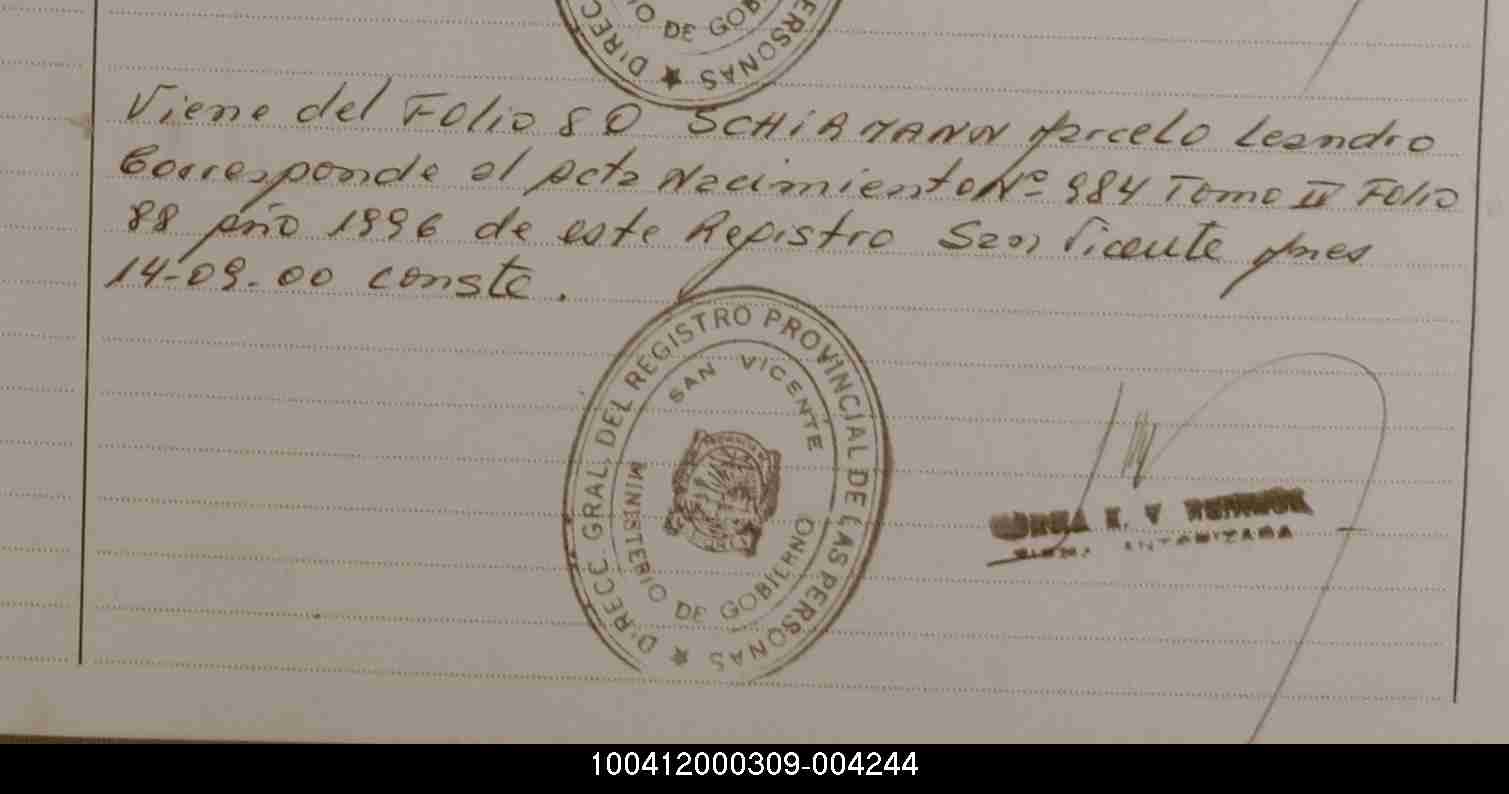 DIREC
PERSONAS
DE GOB
Viene del Folio 80 SCHIAMANN Marcelo Leandro
Corresponde al Acta Nacimiento Nº 984 Tomo II Folio
88 Año 1996 de este Registro San Vicente Mnes
14-09-00 conste.
DIRECC. GRAL. DEL REGISTRO PROVINCIAL DE LAS PERSONAS
SAN VICENTE
MINISTERIO DE GOBIERNO
100412000309-004244